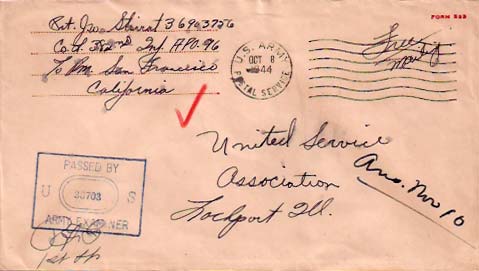 FORM 539
Pvt. Geo. 36903726
Co. G 382nd Inf. APO. 96
% Pm San Francisco
California
U.S. ARMY
OCT 8
1944
POSTAL SERVICE
Free
Mail
PASSED BY
U 38703 S
ARMY EXAMINER
1st Lt
United Service
Association
Lockport Ill.
Ans. Nov 10